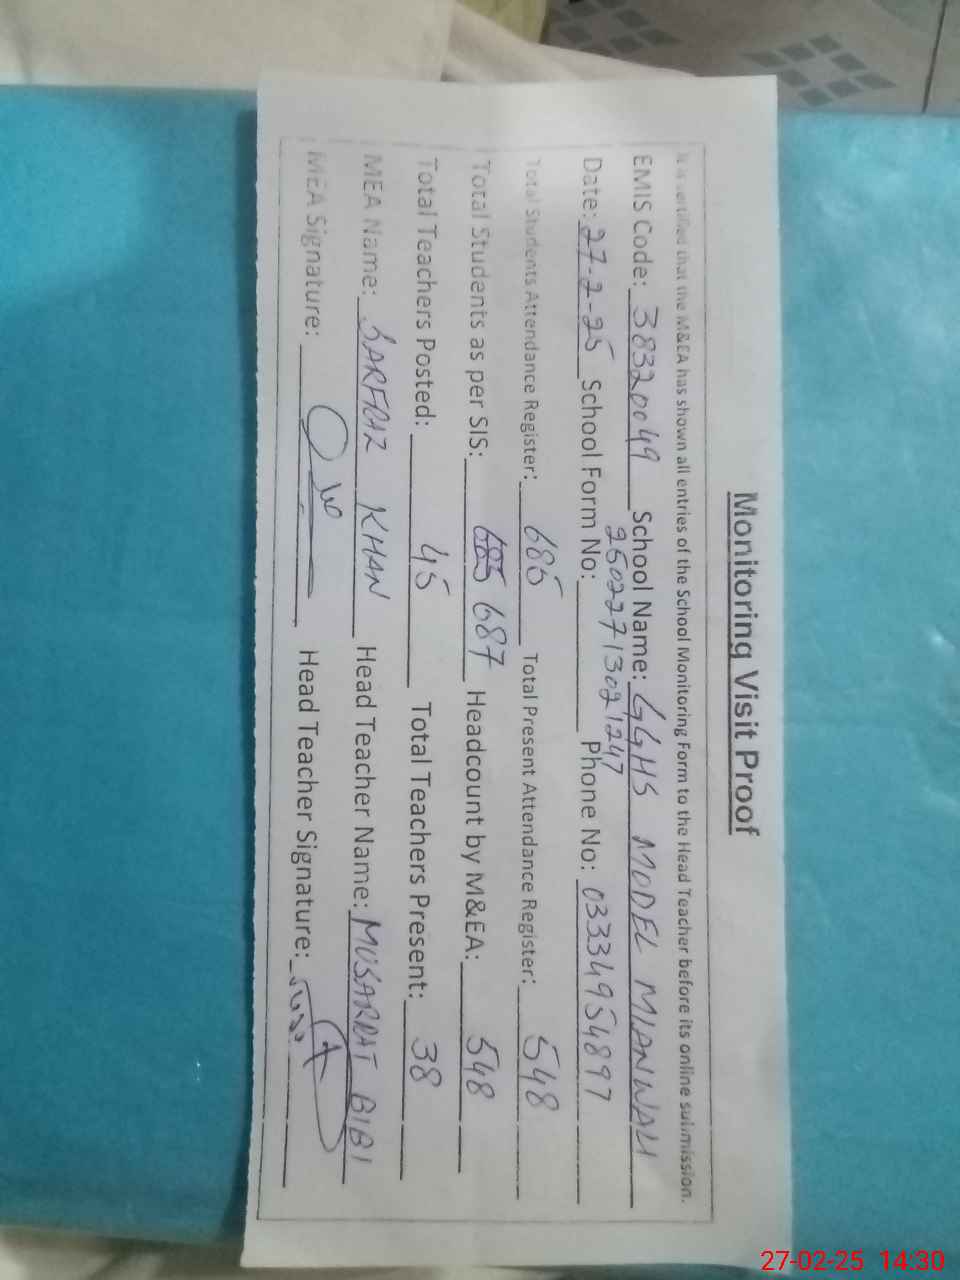 Monitoring Visit Proof
It is certified that the M&EA has shown all entries of the School Monitoring Form to the Head Teacher before its online submission.
EMIS Code: 38320049 School Name: GGHS MODEL MIANWALI
25022713021247
Date: 27-2-25 School Form No: Phone No: 03334954897
Total Students Attendance Register: 685 Total Present Attendance Register: 548
Total Students as per SIS: 685 687 Headcount by M&EA: 548
Total Teachers Posted: 45 Total Teachers Present: 38
MEA Name: SARFRAZ KHAN Head Teacher Name: MUSARRAT BIBI
MEA Signature: Head Teacher Signature:
27-02-25 14:30